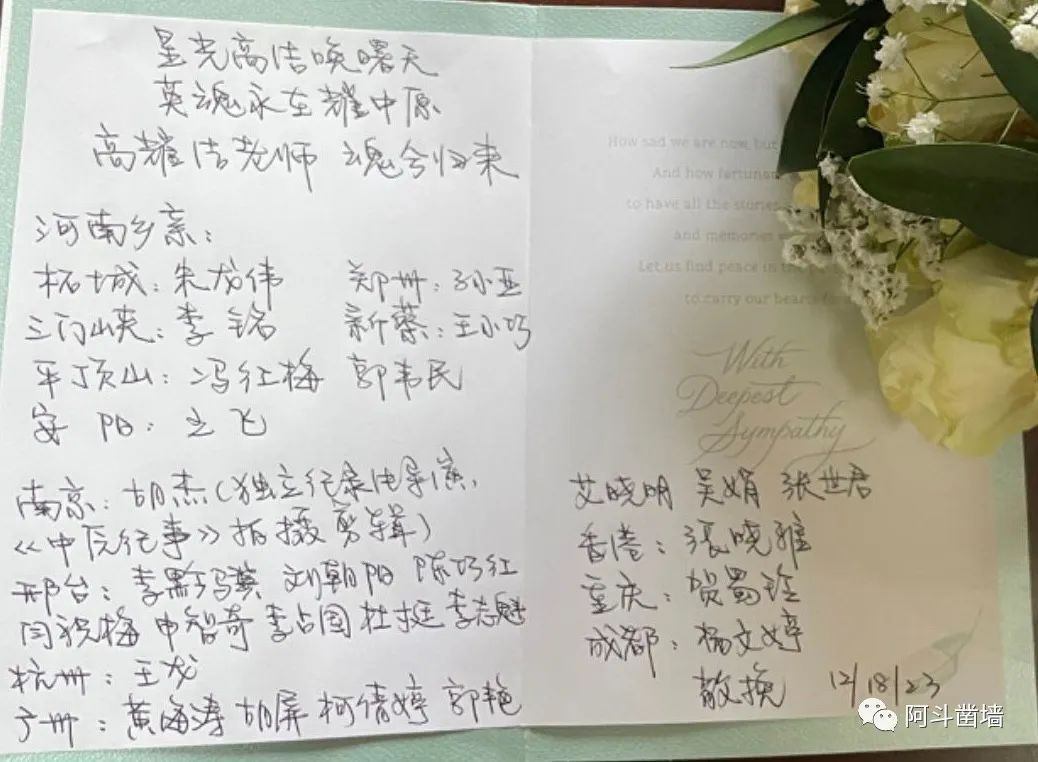 星光高洁唤曙天
英魂永在耀中原
高耀洁老师 魂兮归来
河南乡亲:
柘城: 朱龙伟 郑州: 孙亚
三门峡: 李铭 新蔡: 王小巧
平顶山: 冯红梅 郭韦民
安阳: 之飞
南京: 胡杰(独立纪录片导演,
《中原纪事》拍摄剪辑)
邢台: 李 刘朝阳 陈巧红
闫祝梅 申智奇 李占国 杜挺 李志魁
杭州: 王龙
广州: 黄海涛 胡屏 柯倩婷 郭艳
How sad we are now, but
And how fortunat
to have all the stories
and memories
Let us find peace in th
to carry our hearts fo
With
Deepest
Sympathy
艾晓明 吴娟 张世君
香港: 張晓雅
重庆: 贺蜀玲
成都: 杨文婷
敬挽 12/18/23
阿斗凿墙